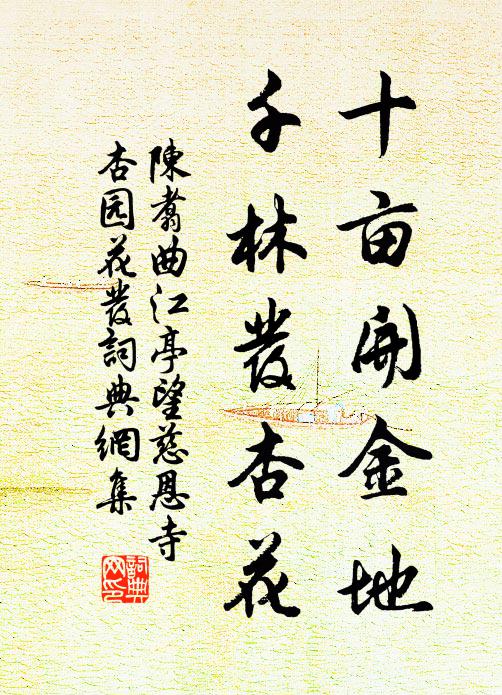 十亩開金地
千林發杏花
陳翥曲江亭望慈恩寺
杏园花發詞典網集
詞典
网印